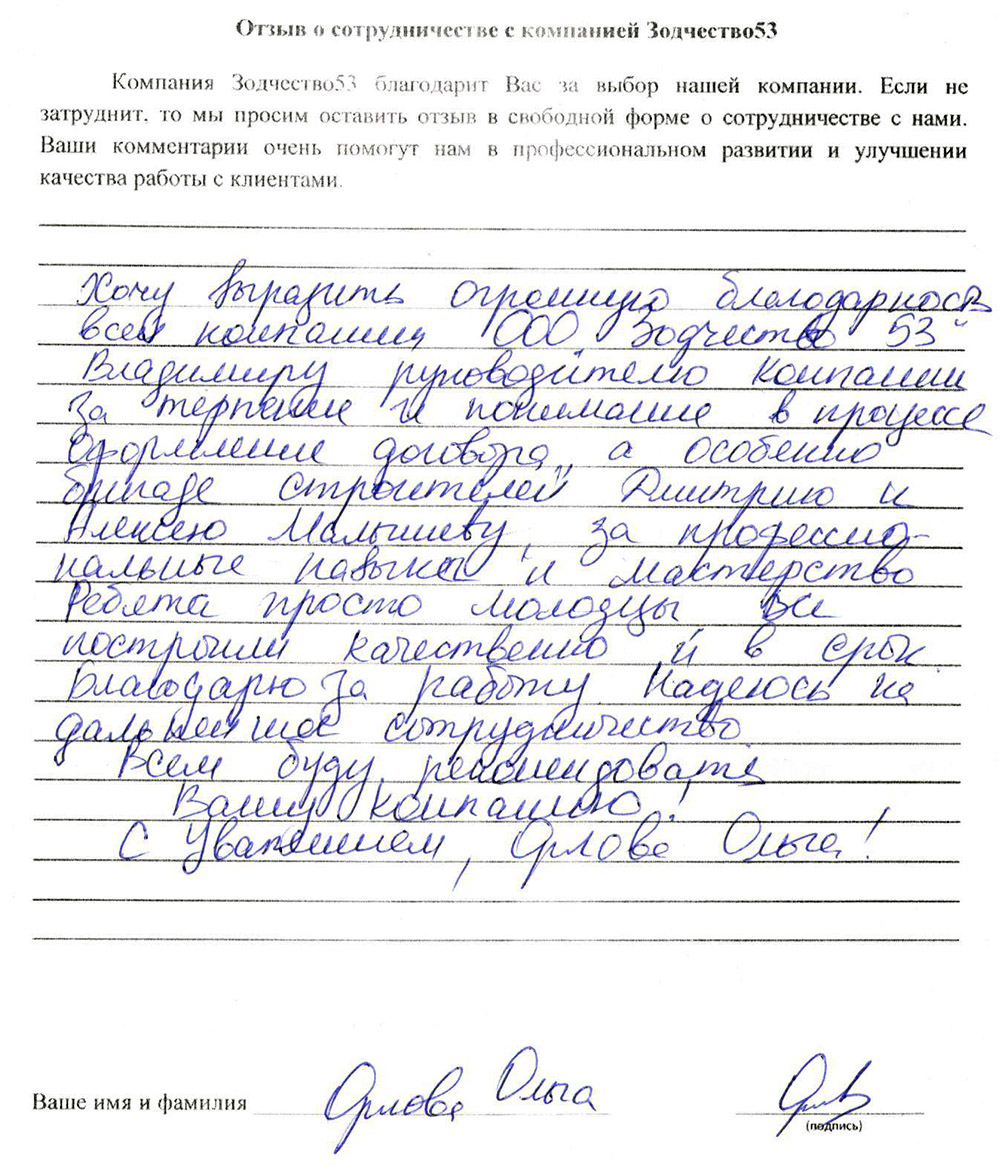 Отзыв о сотрудничестве с компанией Зодчество53
Компания Зодчество53 благодарит Вас за выбор нашей компании. Если не
затруднит, то мы просим оставить отзыв в свободной форме о сотрудничестве с нами.
Ваши комментарии очень помогут нам в профессиональном развитии и улучшении
качества работы с клиентами.
Хочу выразить огромную благодарность
всей компании ООО Зодчество 53"
Владимиру руководителю компании
за терпение и понимание в процессе
оформление договора, а особенно
бригаде строителей Дмитрию и
Алексею Малышеву, за профессио-
нальные навыки и мастерство
Ребята просто молодцы все
построили качественно и в срок.
Благодарю за работу. Надеюсь на
дальнейшее сотрудничество.
Всем буду рекомендовать
Вашу компанию!
С Уважением, Орлова Ольга!
Ваше имя и фамилия Орлова Ольга
(подпись)